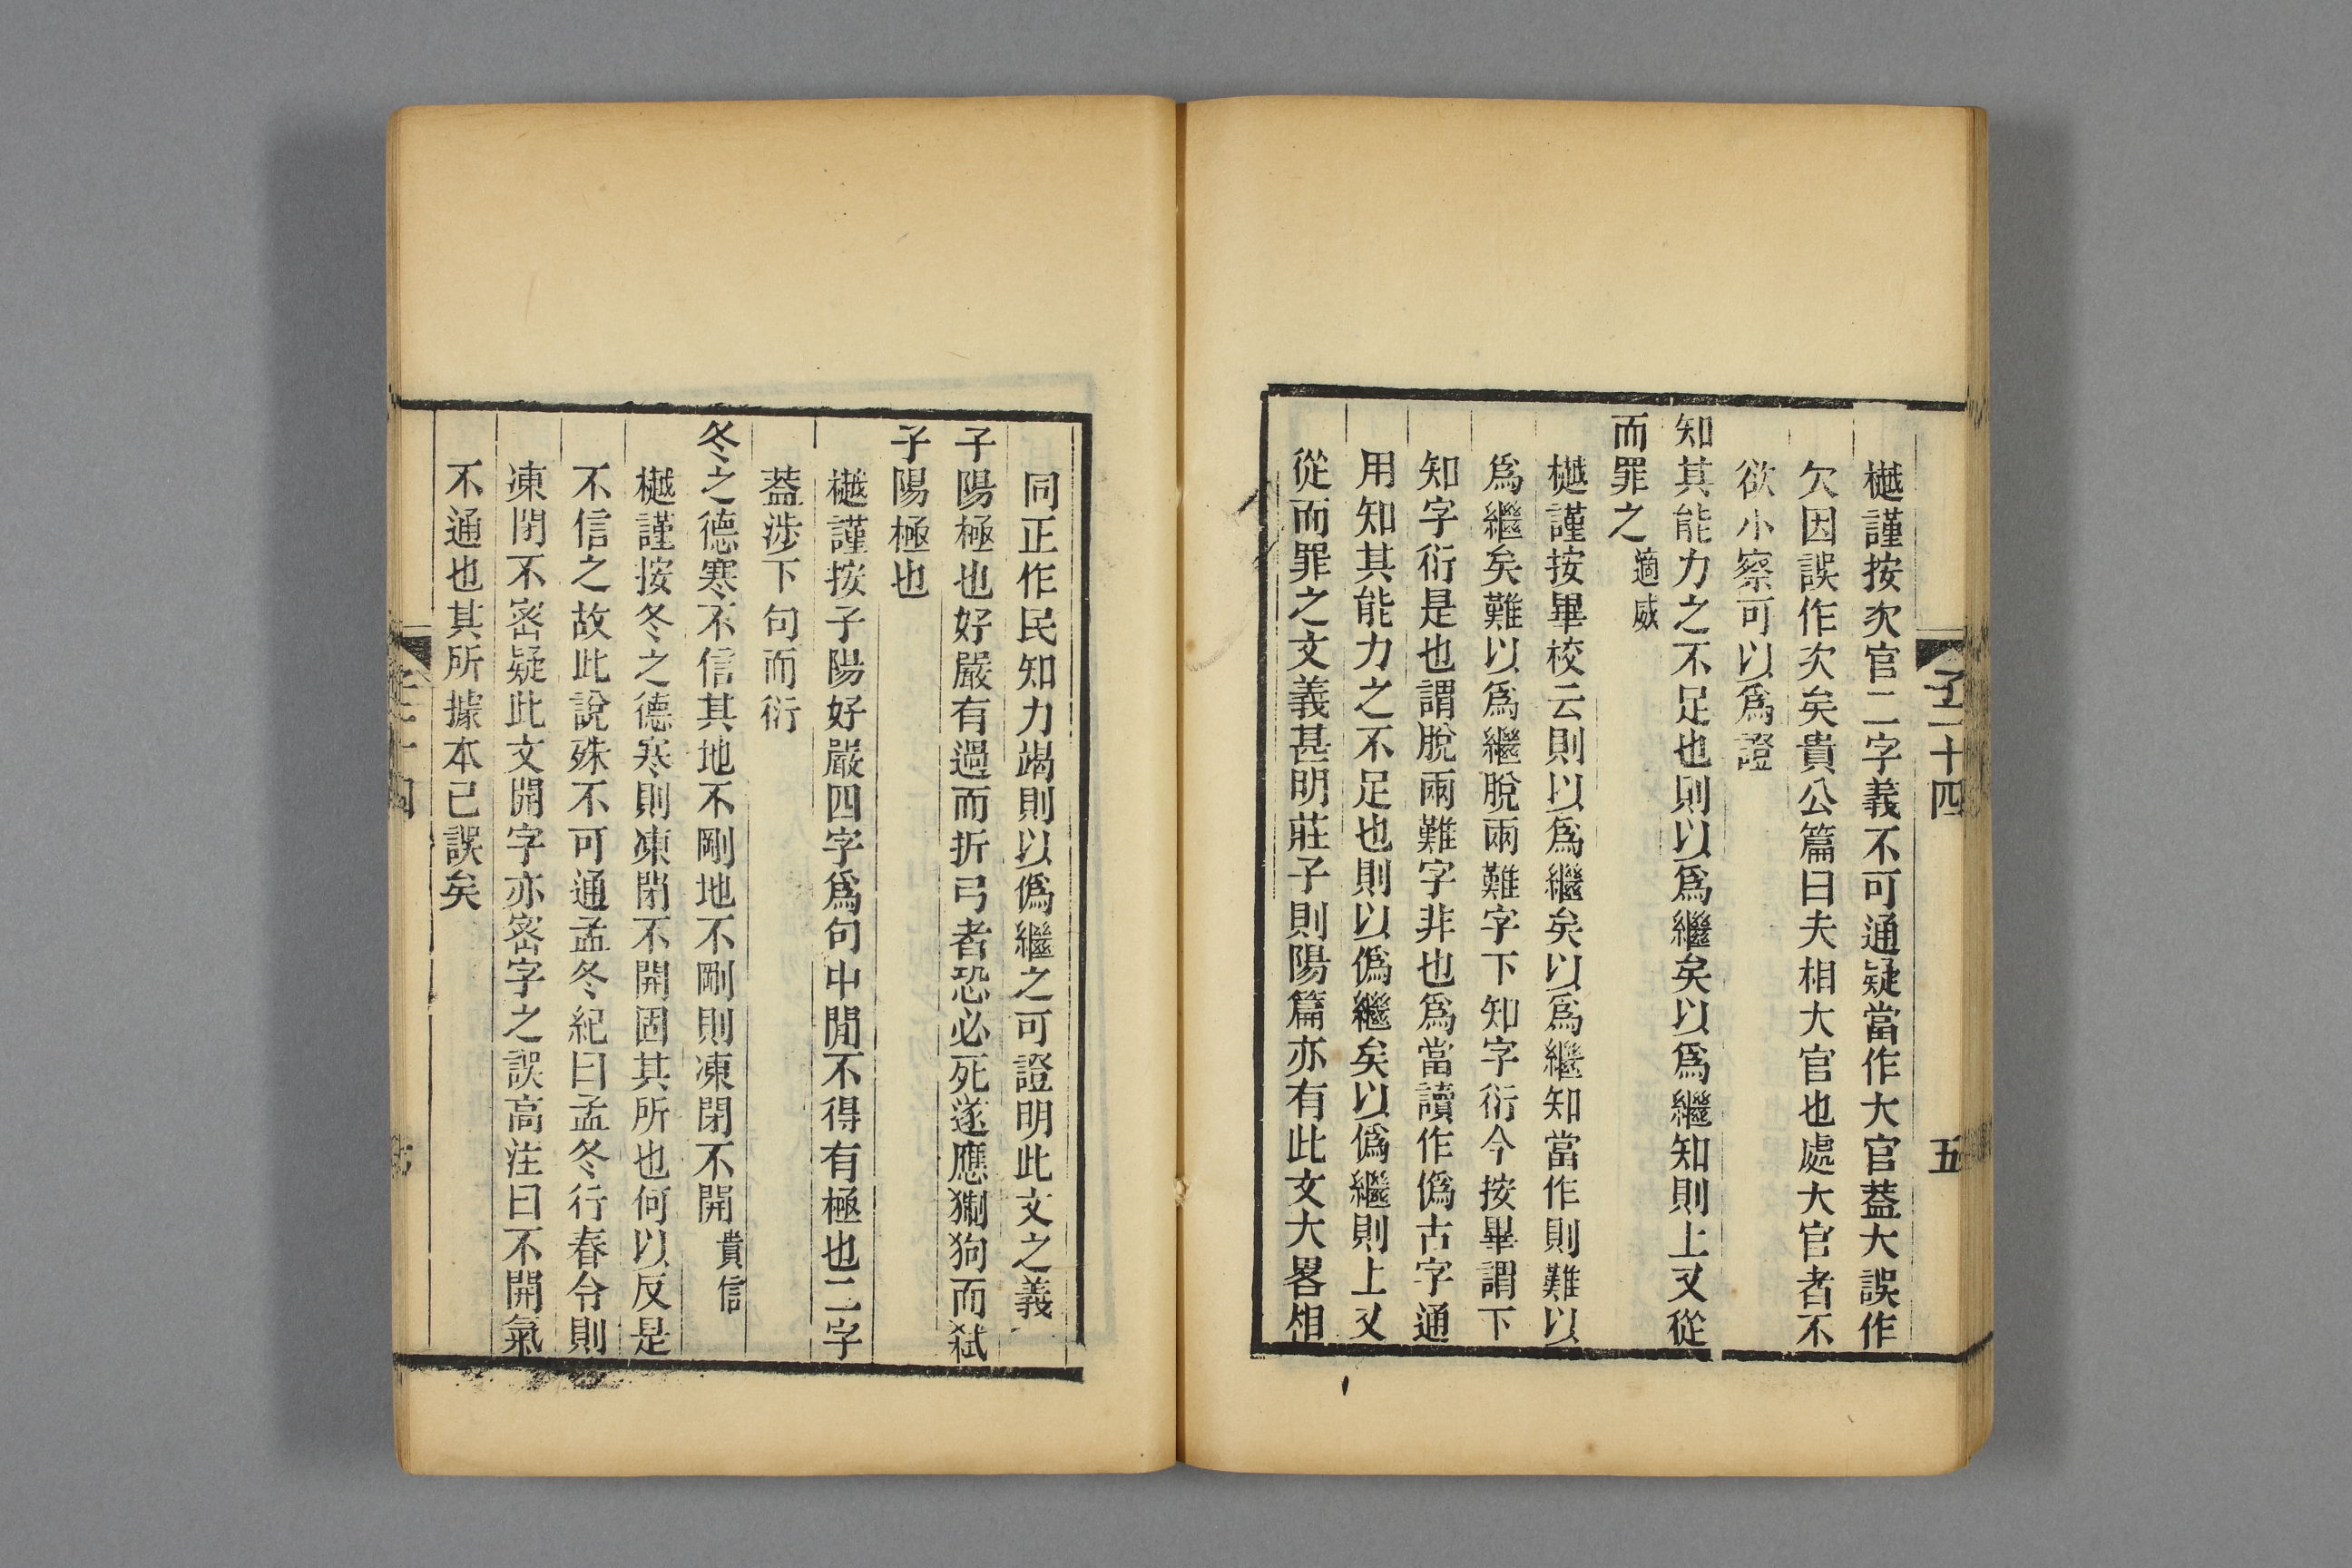 子二十四
五
樾謹按次官二字義不可通疑當作大官葢大誤作
欠因誤作次矣貴公篇曰夫相大官也處大官者不
欲小察可以爲證
知其能力之不足也則以爲繼矣以爲繼知則上又從
而罪之適威
樾謹按畢校云則以爲繼矣以爲繼知當作則難以
爲繼矣難以爲繼脫兩難字下知字衍今按畢謂下
知字衍是也謂脫兩難字非也爲當讀作僞古字通
用知其能力之不足也則以僞繼矣以僞繼則上又
從而罪之文義甚明莊子則陽篇亦有此文大畧相
同正作民知力竭則以僞繼之可證明此文之義
子陽極也好嚴有過而折弓者恐必死遂應猘狗而弒
子陽極也
樾謹按子陽好嚴四字爲句中閒不得有極也二字
葢涉下句而衍
冬之德寒不信其地不剛地不剛則凍閉不開貴信
樾謹按冬之德寒則凍閉不開固其所也何以反是
不信之故此說殊不可通孟冬紀曰孟冬行春令則
凍閉不密疑此文開字亦密字之誤高注曰不開氣
不通也其所據本已誤矣